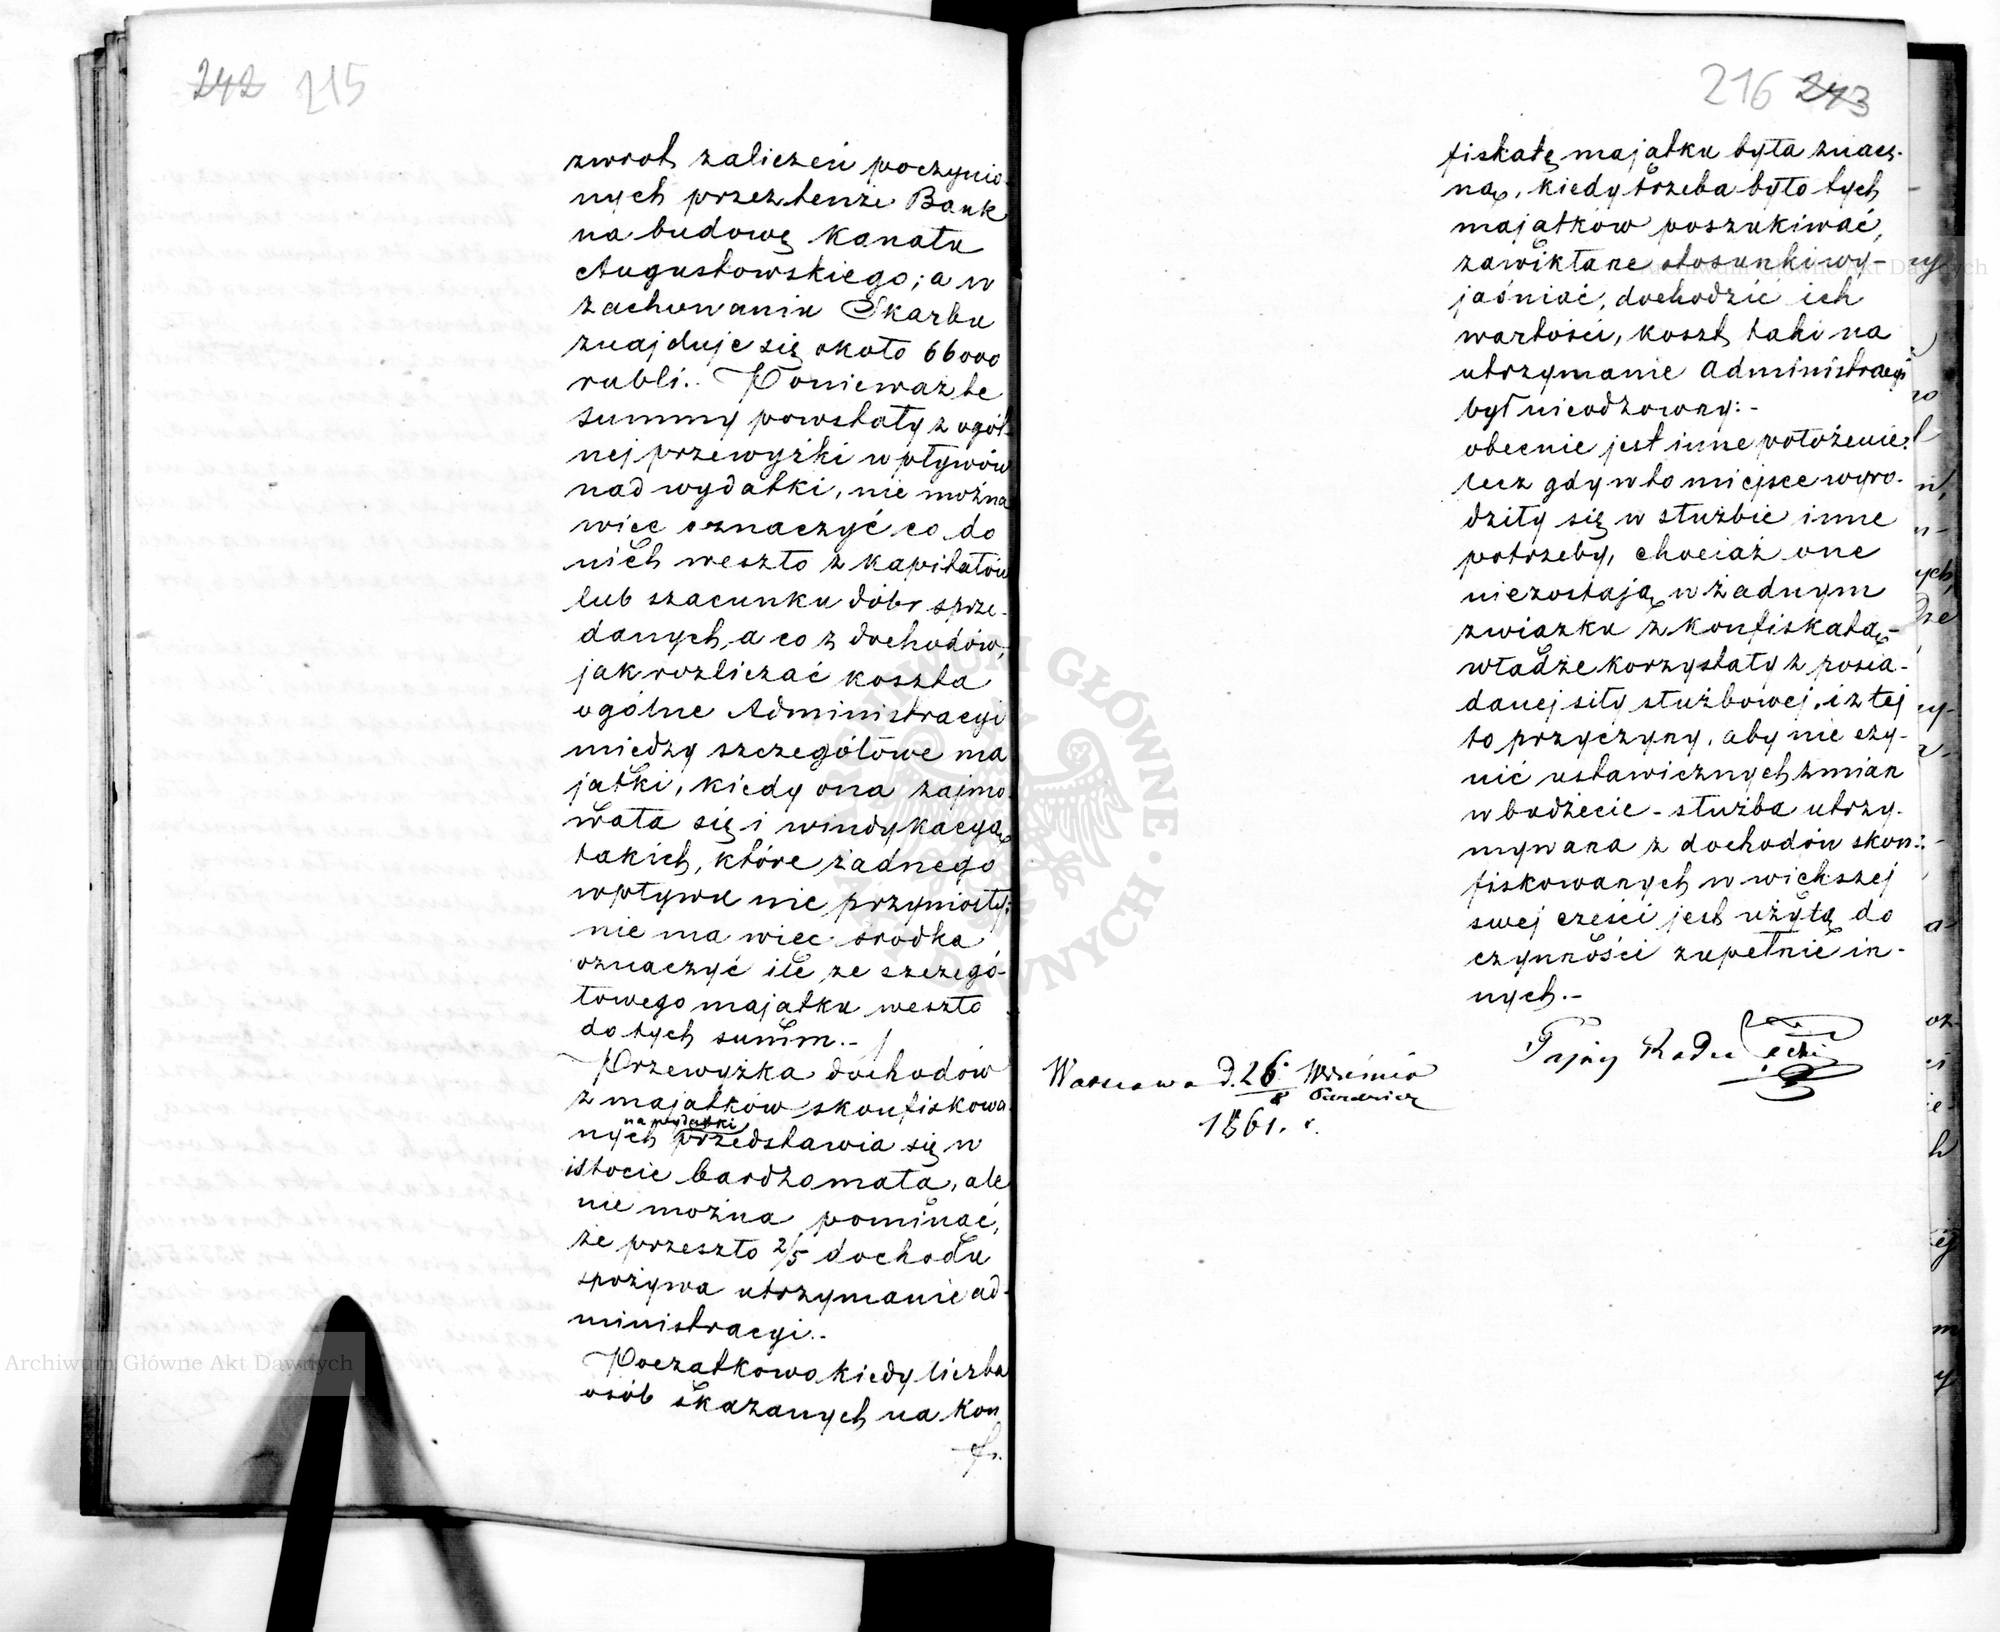 242 215
zwrot zaliczeń poczynio-
nych przez tenże Bank
na budowę kanału
Augustowskiego; a w
zachowaniu Skarbu
znajduje się około 66000
rubli.. Ponieważ te
summy powstały z ogól-
nej przewyżki wpływów
nad wydatki, nie można
więc oznaczyć co do
nich weszło z kapitałów
lub szacunku dóbr sprze-
danych, a co z dochodów,
jak rozliczać koszta
ogólne Administracyi
między szczegółowe ma
jątki, kiedy ona zajmo-
wała się i windykacyą
takich, które żadnego
wpływu nie przyniosły;
nie ma więc środka
oznaczyć ile ze szczegó-
łowego majątku weszło
do tych summ.-
Przewyżka dochodów
z majątków skonfiskowa-
na wydatki
nych przedstawia się w
istocie bardzo mała, ale
nie można pominąć,
że przeszło 2/5 dochodu
spożywa utrzymanie ad-
ministracyi.-
Początkowo kiedy liczba
osób skazanych na kon
fi.
216 243
fiskatę majątku była znacz-
ną, kiedy trzeba było tych
majątków poszukiwać,
zawikłane stosunki wy-
jaśniać, dochodzić ich
wartości, koszt taki na
utrzymanie Administracyi
był nieodzowny:-
obecnie jest inne położenie:
lecz gdy w to miejsce wyro-
dziły się w służbie inne
potrzeby, chociaż one
niezostają w żadnym
związku z konfiskatą-
władze korzystały z posia-
danej siły służbowej, i z tej
to przyczyny, aby nie czy-
nić ustawicznych zmian
w budżecie - służba utrzy-
mywana z dochodów skon-
fiskowanych w większej
swej części jest użytą do
czynności zupełnie in-
nych.-
Tajny Radca
Warszawa d. 26/8 Września
Października
1861. r.
Archiwum Główne Akt Dawnych
Archiwum Główne Akt Dawnych
ARCHIWUM GŁÓWNE AKT DAWNYCH